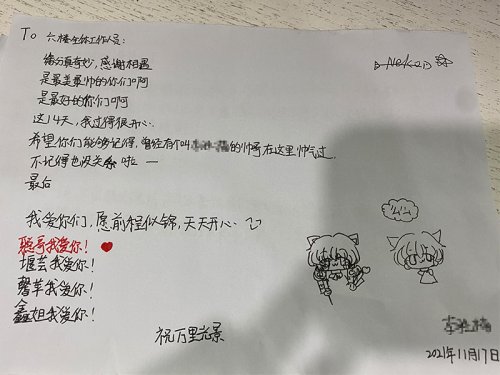 To 六楼全体工作人员:
缘分真奇妙,感谢相遇
是最美最帅的你们啊
是最好的你们啊
这14天,我过得很开心.
希望你们能够记得,曾经有个叫李 的帅哥在这里帅气过.
不记得也没关系啦 一
最后
我爱你们,愿前程似锦,天天开心
我爱你!
我爱你!
我爱你!
鑫姐我爱你!
祝万里光景
李
2021年11月17日